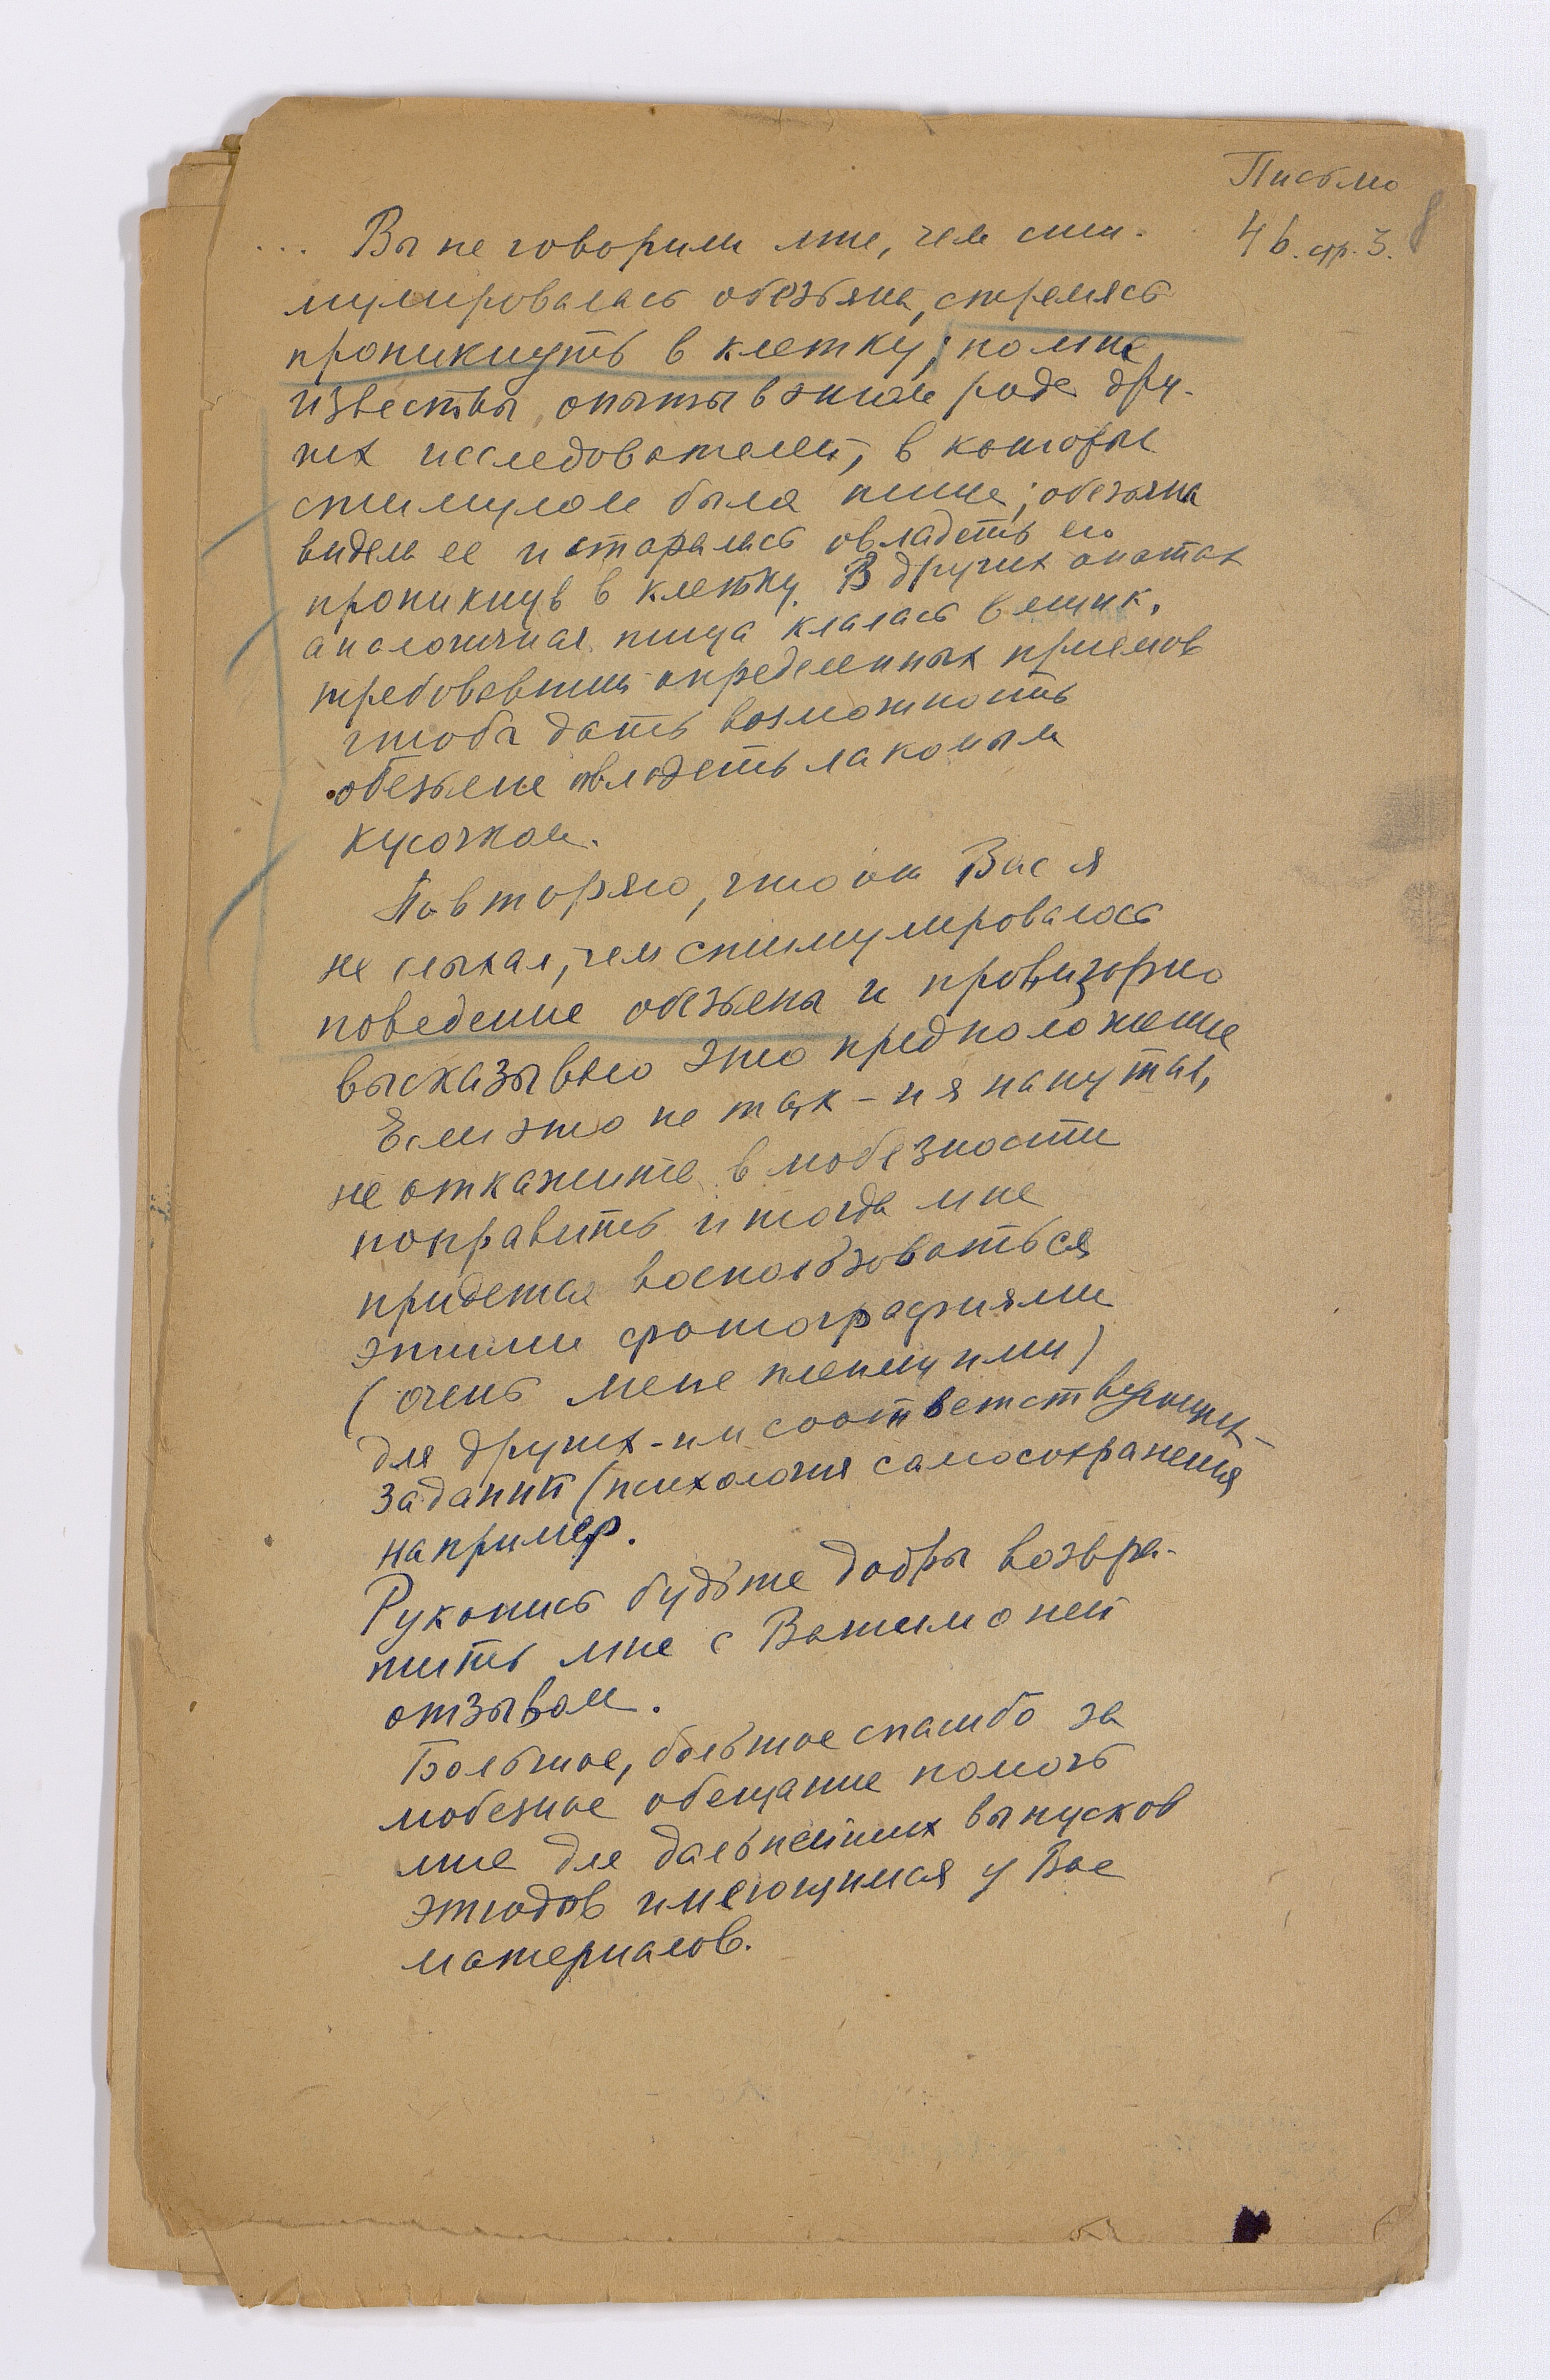 Письмо
4 в. стр. 3.
... Вы не говорили мне, чем сти-
мулировалась обезьяна, стремясь
проникнуть в клетку; но мне
известны опыты в этом роде дру-
гих исследователей, в которые
стимулом была пища; обезьяна
видела ее и старалась овладеть ею
проникнув в клетку. В других опытах
аналогичная пища клалась в ящик,
требовавший определенных приемов
чтобы дать возможность
обезьяне овладеть лакомым
кусочком.
Повторяю, что от Вас я
не слыхал, чем стимулировалось
поведение обезьяны и провизорно
высказываю это предположение
Если это не так - и я напутал,
не откажите в любезности
поправить и тогда мне
придется воспользоваться
этими фотографиями
(очень мене ценными)
для других - им соответствующих -
заданий (психология самосохранения
например.
Рукопись будьте добры возвра-
тить мне с Вашим о ней
отзывом.
Большое, большое спасибо за
любезное обещание помочь
мне для дальнейших выпусков
этюдов имеющимся у Вас
материалов.